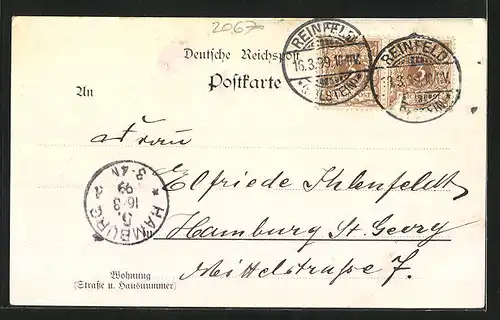 2067
Deutsche Reichspost
Postkarte
REINFELD
16.3.99.
* (HOLSTEIN) *
REINFELD
3
An
Frau
Elfriede Ihlenfeldt
Hamburg St. Georg
Mittelstrasse 7.
* HAMBURG 2
5.
16.3
99
3-4N
Wohnung
(Straße u. Hausnummer)